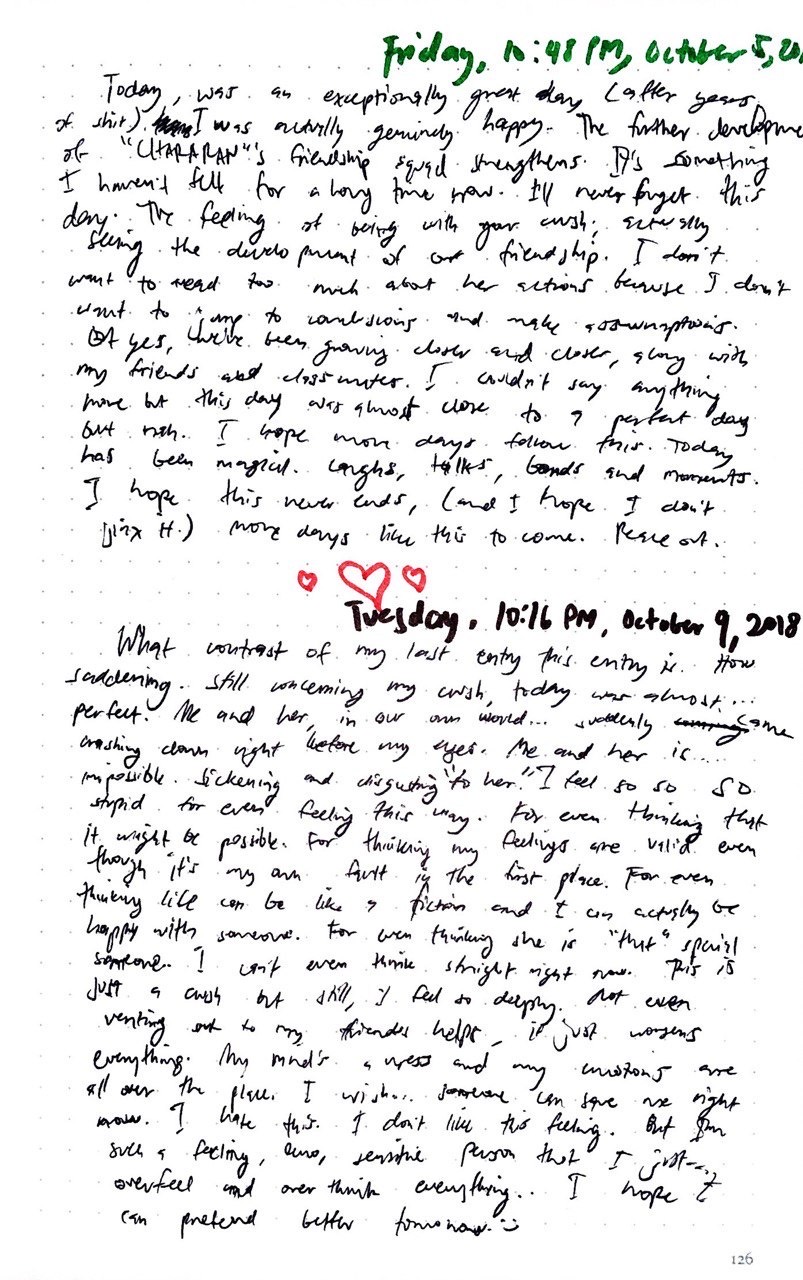 Friday, 10:48 PM, October 5, 20
Today, was an exceptionally great day (after years
of shit) I was actually genuinely happy. The further developme
of "'s friendship squad strengthens. It's something
I haven't felt for a long time now. I'll never forget this
day. The feeling of being with your crush, actually
seeing the development of our friendship. I don't
want to read too much about her actions because I don't
want to jump to conclusions and make assumptions.
But yes, we've been growing closer and closer, along with
my friends and classmates. I couldn't say anything
more but this day was almost close to a perfect day
but meh. I hope more days follow this. Today
has been magical. Laughs, talks, bonds and moments.
I hope this never ends, (and I hope I don't
jinx it.) more days like this to come. Peace out.
Tuesday, 10:16 PM, October 9, 2018
What contrast of my last entry this entry is. How
saddening. Still concerning my crush, today was almost...
perfect. Me and her, in our own world... suddenly came
crashing down right before my eyes. Me and her is....
impossible. Sickening and disgusting "to her." I feel so so SO
stupid for even feeling this way. For even thinking that
it might be possible. For thinking my feelings are valid even
though it's my own fault in the first place. For even
thinking life can be like a fiction and I can actually be
happy with someone. For even thinking she is "that" special
someone. I can't even think straight right now. This is
just a crush but still, I feel so deeply. Not even
venting out to my friends helps, it just worsens
everything. My mind's a mess and my emotions are
all over the place. I wish... someone can save me right
now. I hate this. I don't like this feeling. But I'm
such a feeling, emo, sensitive person that I just--
overfeel and over think everything.. I hope I
can pretend better tomorrow.
126